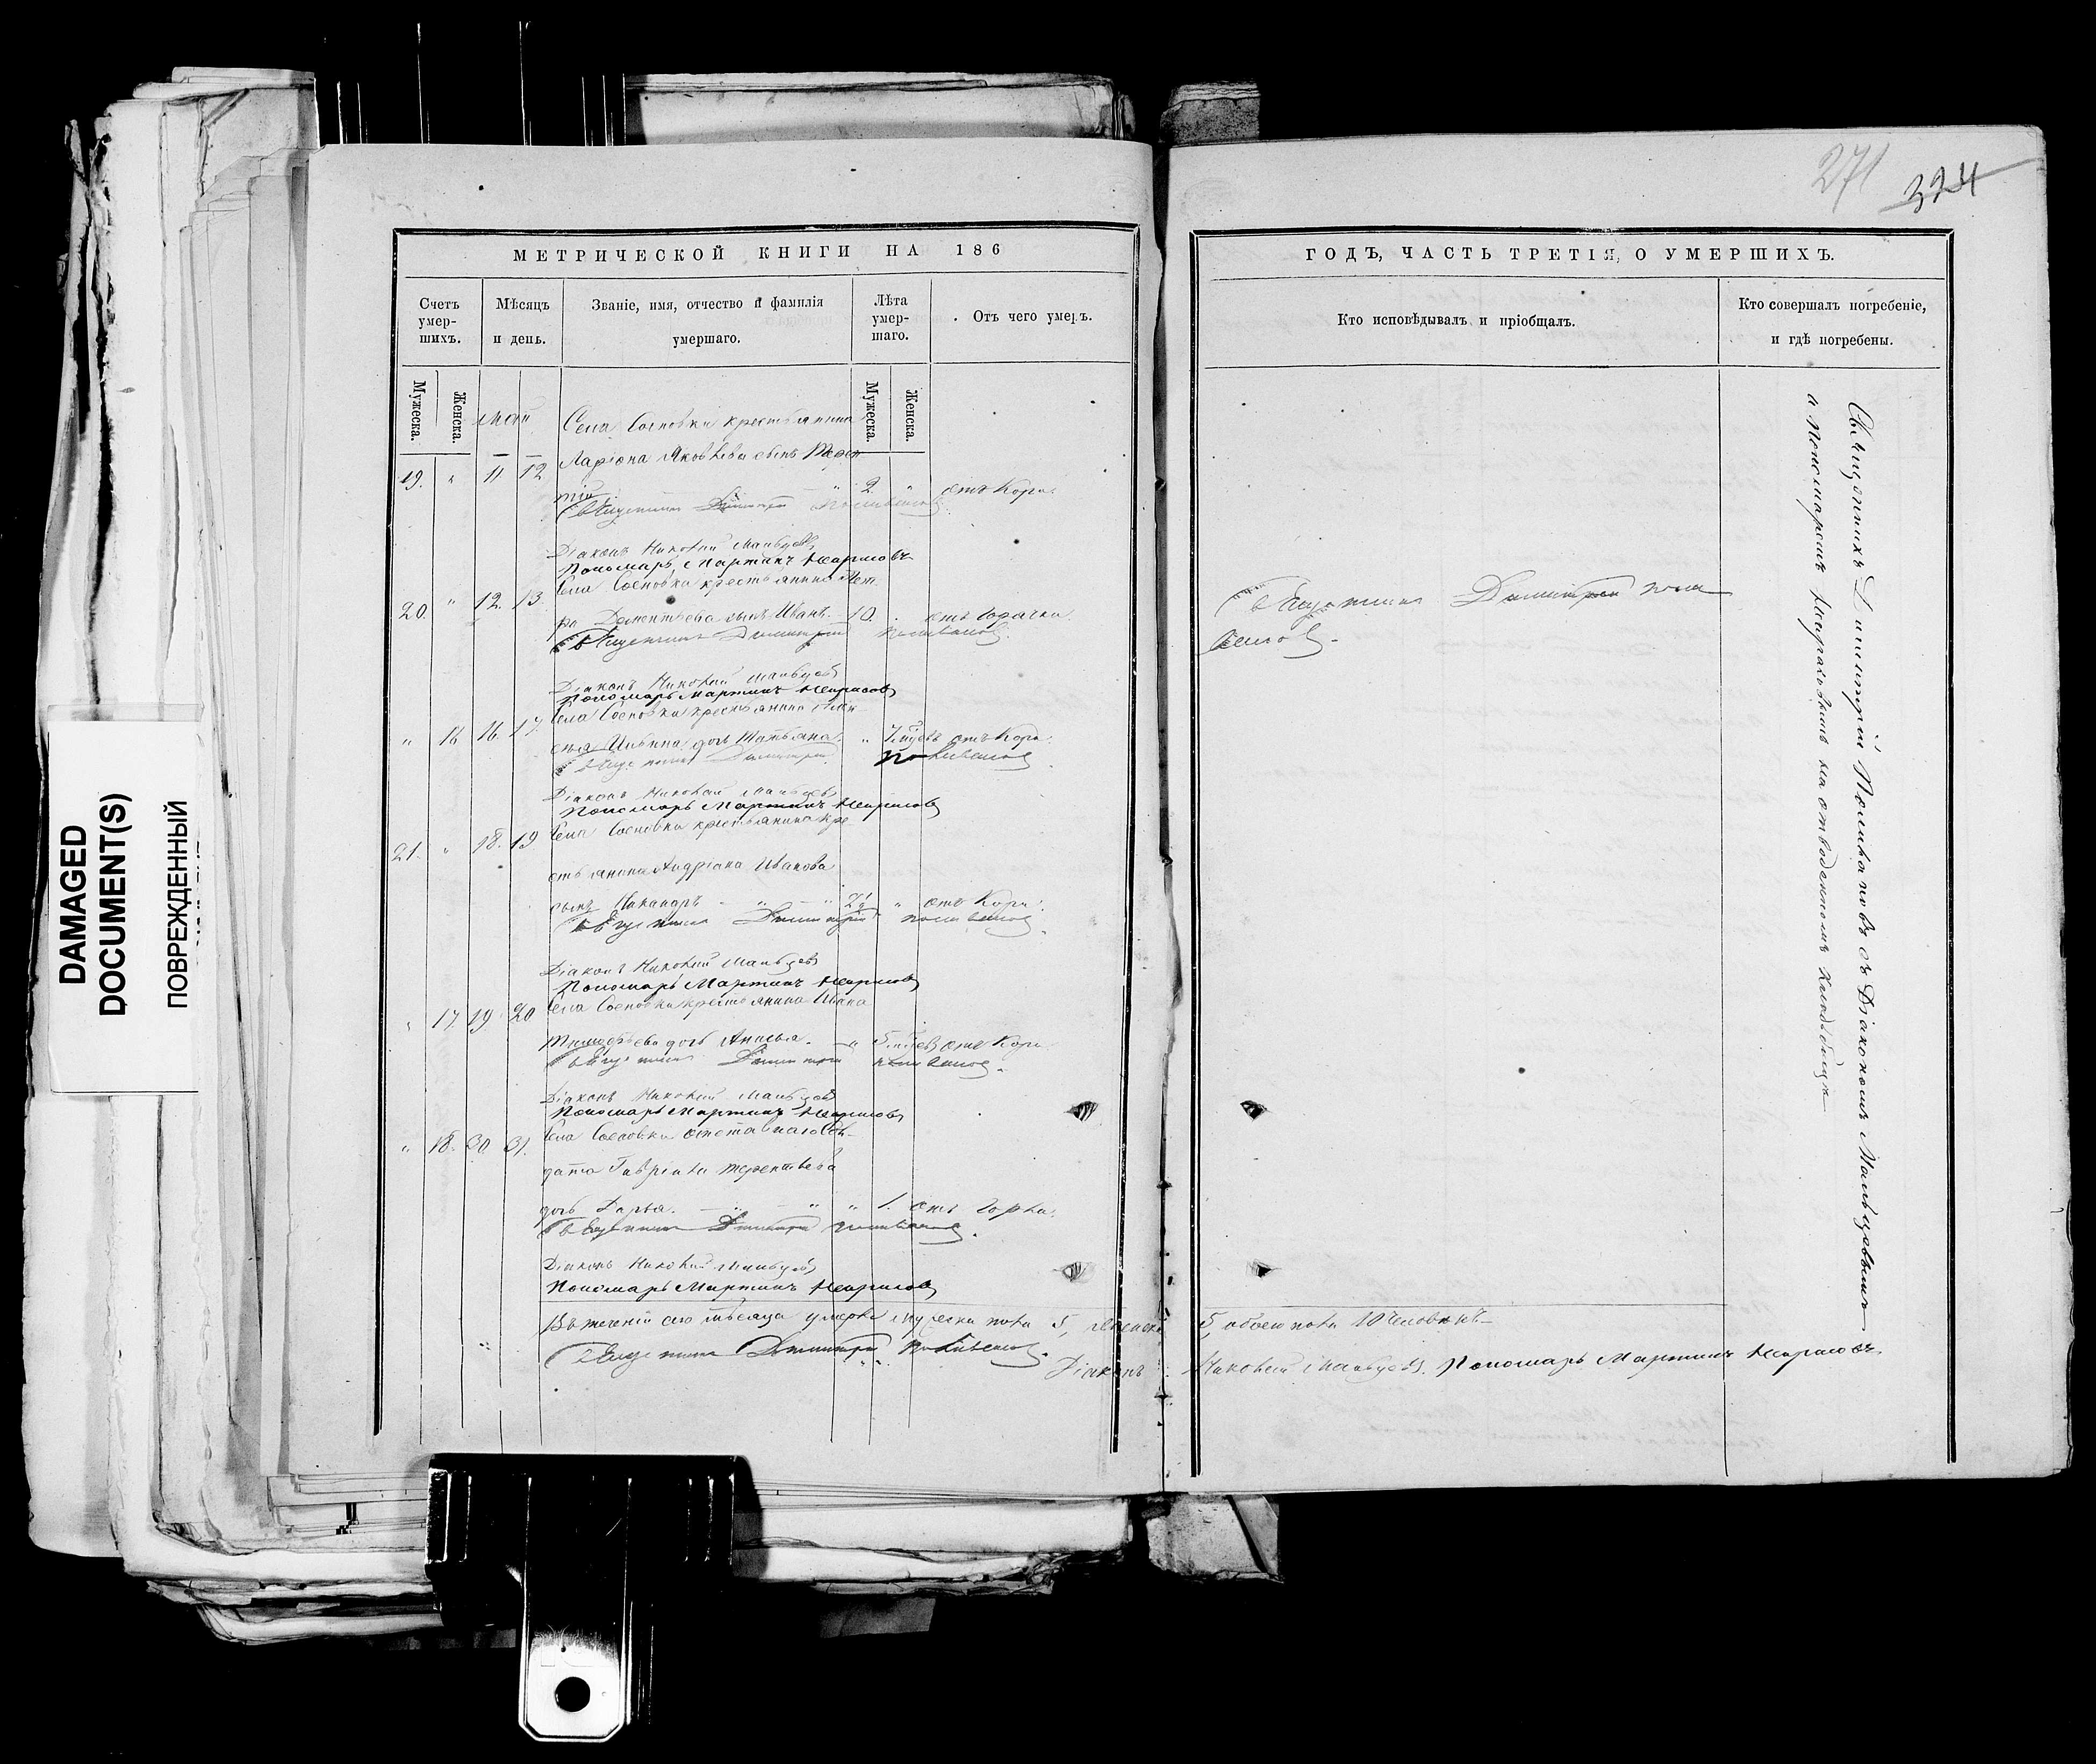 271 324
МЕТРИЧЕСКОЙ КНИГИ НА 186
Счетъ умер-шихъ.
Мѣсяцъ и день.
Званіе, имя, отчество и фамилія умершаго.
Лѣта умер-шаго.
Отъ чего умеръ.
Мужеска.
Женска.
Май
Мужеска.
Женска.
Села Сосновки крестьянина
Ларіона Яковлева сынъ
19. " 11 12
" 2 " отъ Кори.
Священникъ Димитрій Поливановъ
Діаконъ Николай Мальцевъ
Пономарь Мартинъ
Села Сосновки крестьянина Пет
20. " 12. 13.
ра Дементьева сынъ Иванъ. 10. отъ горячки.
Священникъ Димитрій Поливановъ.
Діаконъ Николай Мальцевъ
Пономарь Мартинъ
Села Сосновки крестьянина
" 16 16. 17.
Ильина дочь Татьяна. " отъ Кори.
Священникъ Димитрій Поливановъ.
Діаконъ Николай Мальцевъ
Пономарь Мартинъ
Села Сосновки крестьянина кре
21. " 18. 19
стьянина Андріана Иванова
сынъ Никандръ " " " отъ Кори.
Священникъ Димитрій Поливановъ.
Діаконъ Николай Мальцевъ
Пономарь Мартинъ
Села Сосновки крестьянина Ивана
" 17 19. 20
Тимофѣева дочь Анисья. " отъ Кори
Священникъ Димитрій Поливановъ.
Діаконъ Николай Мальцевъ
Пономарь Мартинъ
Села Сосновки отставнаго сол-
" 18. 30 31.
дата Гавріила Терентьева
дочь Дарья. " " " 1. отъ
Священникъ Димитрій Поливановъ.
Діаконъ Николай Мальцевъ
Пономарь Мартинъ
Въ теченіи сего мѣсяца умерло мужеска пола 5, женска 5, обоего пола 10 человѣкъ
Священникъ Димитрій Поливановъ.
Діаконъ Николай Мальцевъ. Пономарь Мартинъ
ГОДЪ, ЧАСТЬ ТРЕТІЯ, О УМЕРШИХЪ.
Кто исповѣдывалъ и пріобщалъ.
Кто совершалъ погребеніе, и гдѣ погребены.
Священникъ Димитрій Поли
вановъ.
Священникъ Димитрій Поливановъ съ Діакономъ Мальцевымъ
и Пономаремъ на отведенномъ кладбищѣ
DAMAGED
DOCUMENT(S)
ПОВРЕЖДЕННЫЙ